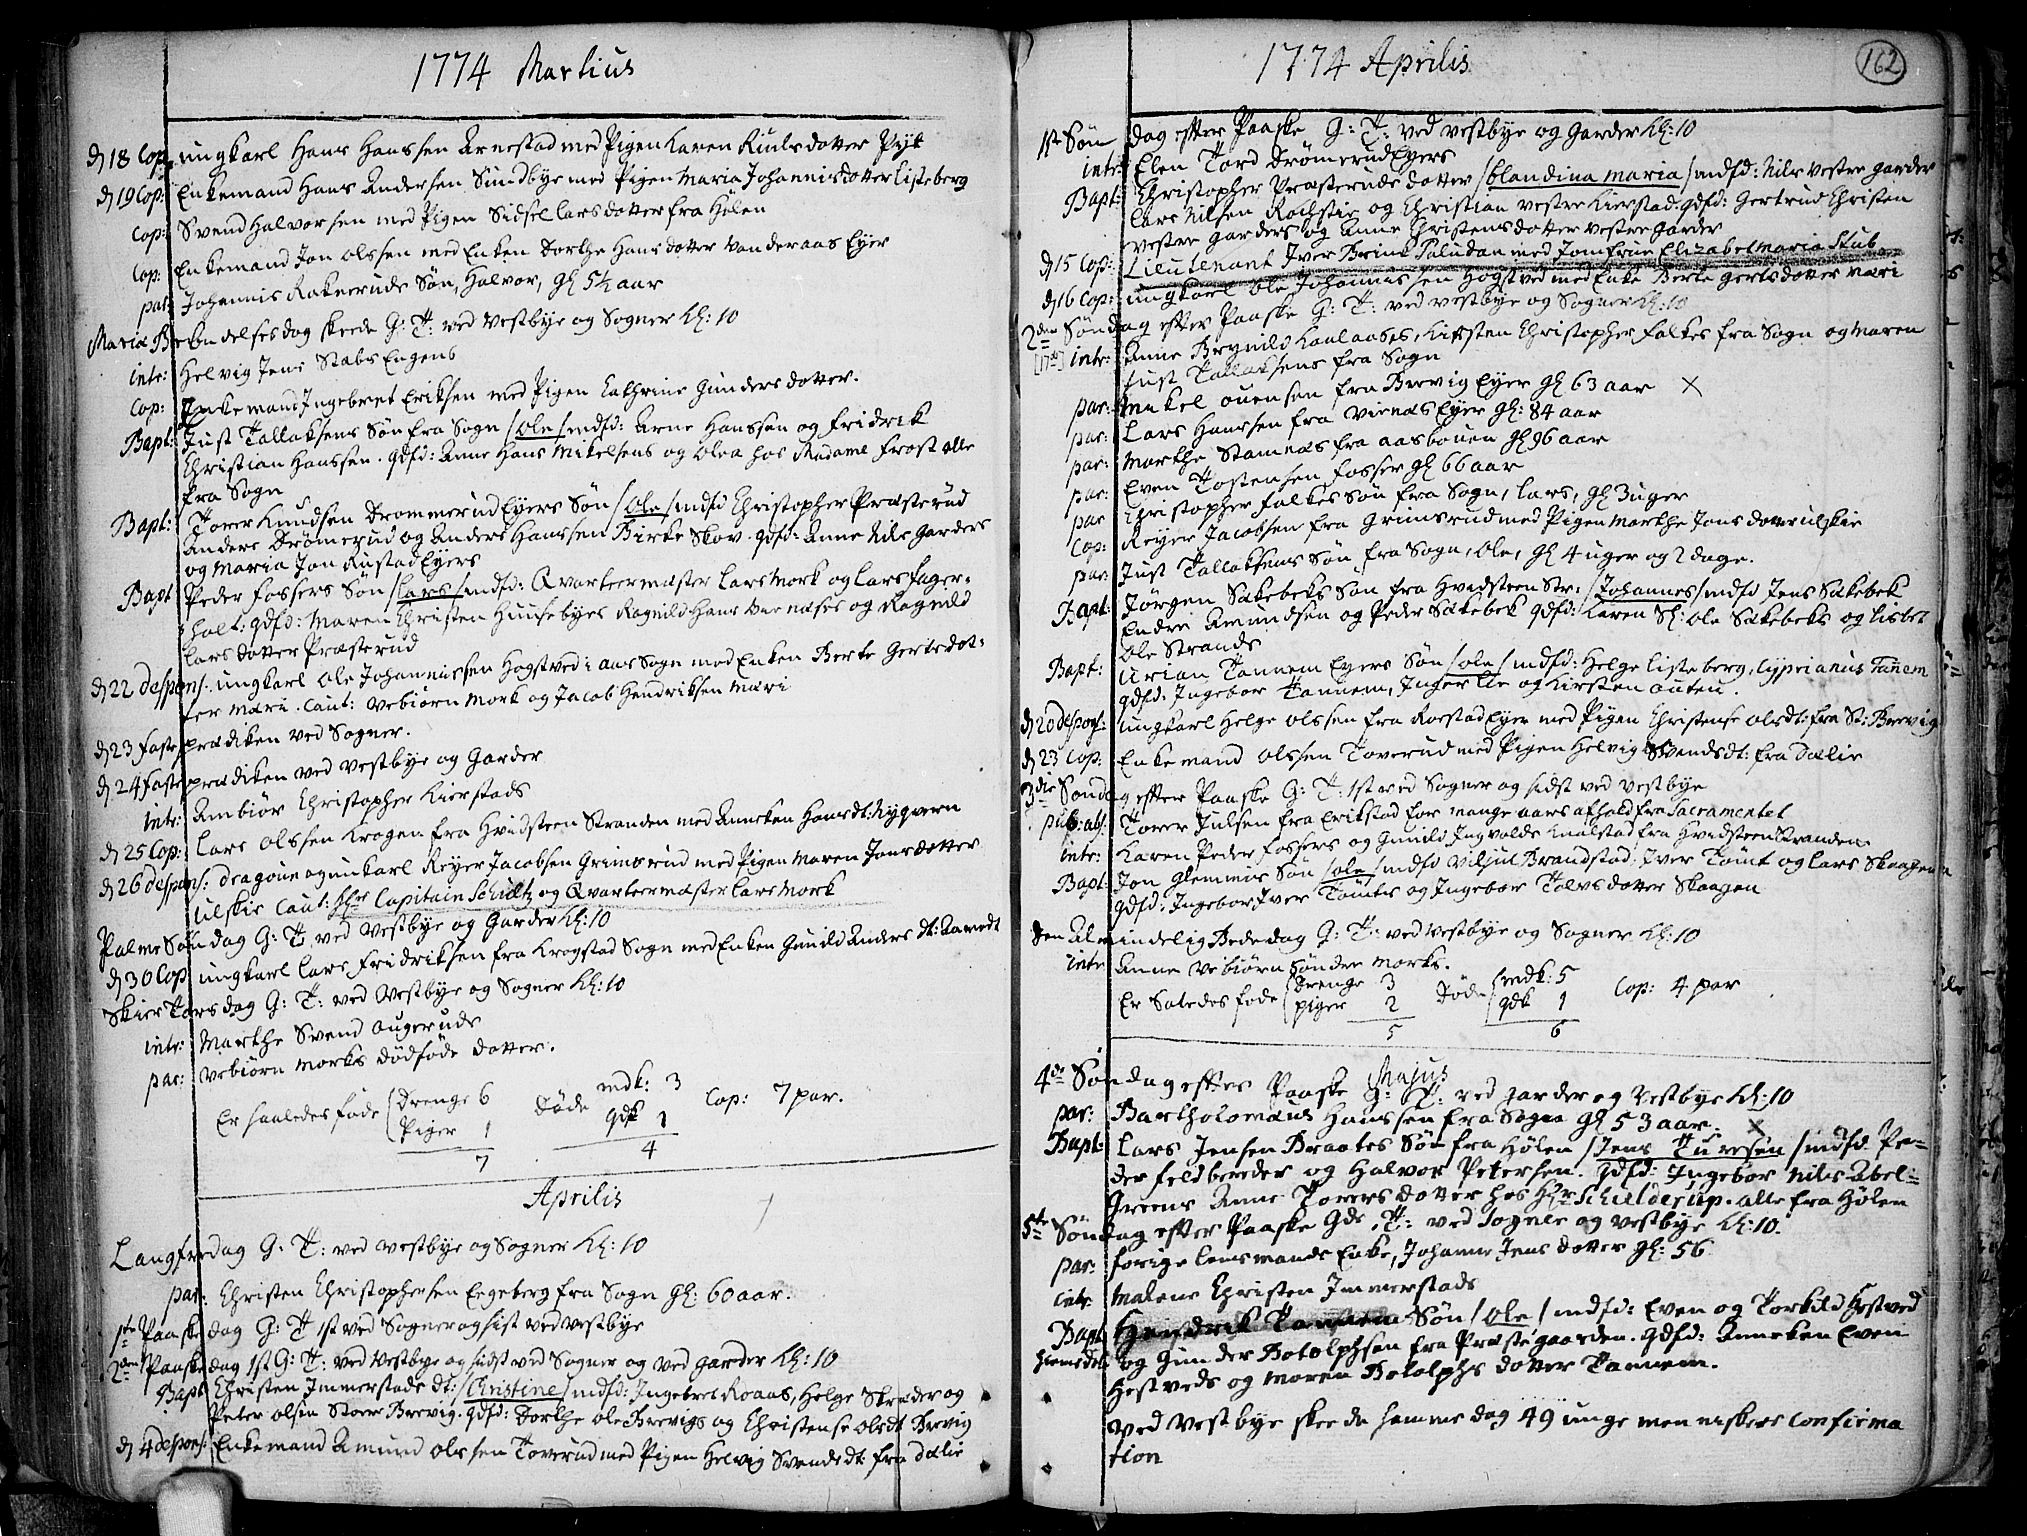 1774 Martius
d 18 Cop: ungkarl Hans Hanssen Arnestad med Pigen Karen Riulsdotter Pytt
d 19 Cop: Enkemand Hans Andersen Sundbye med Pigen Maria Johannisdotter Listeberg
Cop: Svend Halvorsen med Pigen Sidsel Larsdotter fra Hølen
Cop: Enkemand Jon Olssen med Enken Dorthe Hansdotter Vanderaas Eyer
par: Johannis Rakeruds Søn, Halvor, gl 5½ aar
Mariæ Bebudelsesdag skeede G: T: ved Vestbye og Sogner Kl: 10
intr: Helvig Jens Stabs Engens
Cop: Enkemand Ingebret Eriksen med Pigen Cathrine Gundersdotter.
Bapt: Just Tallaksens Søn fra Sogn /Ole/ mdfd: Arne Hanssen og Fridrik
Christian Hanssen. qdfd: Anne Hans Mikelsens og Olea hos Madame Frost alle
fra Sogn
Bapt: Torer Knudsen Drømmerud Eyers Søn /Ole/ mdfd Christopher Præsterud
Anders Drømerud og Anders Hanssen Birke Skov. qdfd: Anne Nils Garders
og Maria Jon Rustad Eyers
Bapt Peder Fossers Søn /Lars/ mdfd: Qvarteermæster Lars Mork og Lars Fager-
holt: qdfd: Maren Christen Huusebyes Ragnild Hans Varnæses og Ragnild
Larsdotter Præsterud
d 22 despons: ungkarl Ole Johannissen Hogstved i Aas Sogn med Enken Berte Gertsdot-
ter Mari. Caut: Vebiørn Mork og Jacob Hendriksen Mari
d 23 Fasteprædiken ved Sogner.
d 24 Fasteprædiken ved Vestbye og Garder
intr: Anbiør Christopher Kierstads
d 25 Cop: Lars Olssen Krogen fra Hvidsteen Stranden med Anneken Hansdt: Nygaern
d 26 despons: dragoun og unkarl Reyer Jacobsen Grimsrud med Pigen Maren Jonsdotter
Ulskie Caut: Hr Capitain Schultz og Qvarteermæster Lars Mork
Palme Søndag G: T ved Vestbye og Garder Kl: 10
d 30 Cop ungkarl Lars Fridriksen fra Krogstad Sogn med Enken Gunild Anders dt:
Skier Torsdag G: T: ved Vestbye og Sogner Kl: 10
intr: Marthe Svend Augeruds
par: Vebiørn Morks dødfødde dotter.
Er saaledes føde Drenge 6 Døde mdk: 3 Cop: 7 par.
Piger 1 qdk 1
7 4
Aprilis
Langfredag G: T: ved Vestbye og Sogner Kl: 10
par: Christen Christophersen Eegeberg fra Sogn gl: 60 aar.
1ste Paaskedag G: T 1st ved Sogner og sist ved Vestbye
2den Paaskedag 1st G: T: ved Vestbye og sidst ved Sogner og ved Garder Kl: 10
Bapt Christen Immerstads dt: /Christine/ mdfd: Ingebret Roaas, Helge Skræder og
Peter Olsen Store Brevig. qdfd: Dorthe Ole Brevigs og Christense Olsdt Brevig
d 4 despons: Enkemand Amund Olssen Toverud med Pigen Helvig Svendsdt: fra Dælie
1774 Aprilis
162
1st Søndag efter Paaske G: T: ved Vestbye og Garder Kl: 10
intr: Elen Tord Drømerud Eyers
Bapt: Christopher Præsteruds dotter /Blandina Maria/ mdfd: Nils Vestre Garder
Lars Nilsen Rochstie og Christian Vestre Kierstad: qdfd: Gertrud Christen
Vestre Garders og Anne Christensdotter Vestre Garder
d 15 Cop: Lieutenant Iver Brink Paludan med Jomfrue Elizabet Maria Stub
d 16 Cop: ungkarl Ole Johannissen Hogstved med Enke Berte Gertsdotter Mari
2den Søndag efter Paaske G: T: ved Vestbye og Sogner Kl: 10
[17de] intr: Anne Brynild Kaalaases, Kirsten Christopher Falkes fra Sogn og Maren
Just Tallaksens fra Sogn
par: Mikel Ouensen fra Brevig Eyer gl 63 aar X
par: Lars Hansen fra Virnæs Eyer gl: 84 aar
par: Marthe Stamnæs fra Aasbouen gl 96 aar
par: Even Tostensen Fosser gl 66 aar
par Christopher Falkes Søn fra Sogn, Lars, gl 3 uger
Cop: Reyer Jacobsen fra Grimsrud med Pigen Marthe Jonsdotter Ulskie
par: Just Tallaksens Søn fra Sogn, Ole, gl 4 uger og 2 dage.
Bapt: Jørgen Sækebeks Søn fra Hvidsteen Str: /Johannes/ mdfd Jens Sækebek
Endre Amundsen og Peder Sækebek qdfd: Karen Sl: Ole Sækebeks og Lisbet
Ole Strands
Bapt: Urian Tannem Eyers Søn /Ole/ mdfd: Helge Listeberg, Cyprianus Tanem
qdfd: Ingebor Tannem, Inger Lie og Kirsten Outen.
d 20 despons: ungkarl Helge Olssen fra Roestad Eyer med Pigen Christense Olsdt: fra St: Brevig
d 23 Cop: Enkemand Olssen Toverud med Pigen Helvig Svendsdt: fra Dælie
3die Søndag efter Paaske G: T: 1st ved Sogner og sidst ved Vestbye
pub: abs: Torer Julsen fra Erikstad for mange aars afhold fra Sacramentet
intr: Karen Peder Fossers og Gunild Ingvalds Knalstad fra Hvidsteen Stranden
Bapt: Jon Glemmis Søn /Ole/ mdfd Viljul Brandstad, Iver Tømt og Lars Skaagen
qdfd: Ingebor Iver Tømtes og Ingebor Tolvsdotter Skaagen
Den Almindelig Bededag G: T: ved Vestbye og Sogner Kl: 10
intr Anne Vebiørn Søndre Morks.
Er Saledes føde Drenge 3 Døde mdk: 5 Cop: 4 par
piger 2 qdk 1
5 6
Majus
4de Søndag efter Paaske G: T: ved Garder og Vestbye Kl: 10
par: Bartholomæus Hanssen fra Sogn gl 53 aar. X
Bapt: Lars Jensen Braates Søn fra Hølen /Jens Turesen/ mdfd. Pe-
der Feldbereder og Halvor Petersen. qdfd: Ingebor Nils Abel-
Greens Anne Torersdotter hos Hr Schielderup. alle fra Hølen
5te Søndag efter Paaske Gds. T: ved Sogner og Vestbye Kl: 10.
par: forige Lensmands Enke, Johanne Jensdotter gl: 56
intr: Malene Christen Immerstads
Bapt Hendrik Tannem Søn /Ole/ mdfd: Even og Torkild Hestved
hiemedøbt og Gunder Botolphsen fra Præstegaarden. qdfd: Anneken Even
Hestveds og Maren Botolphsdotter Tannem.
Ved Vestbye skeede samme dag 49 unge menniskers Confirma
tion